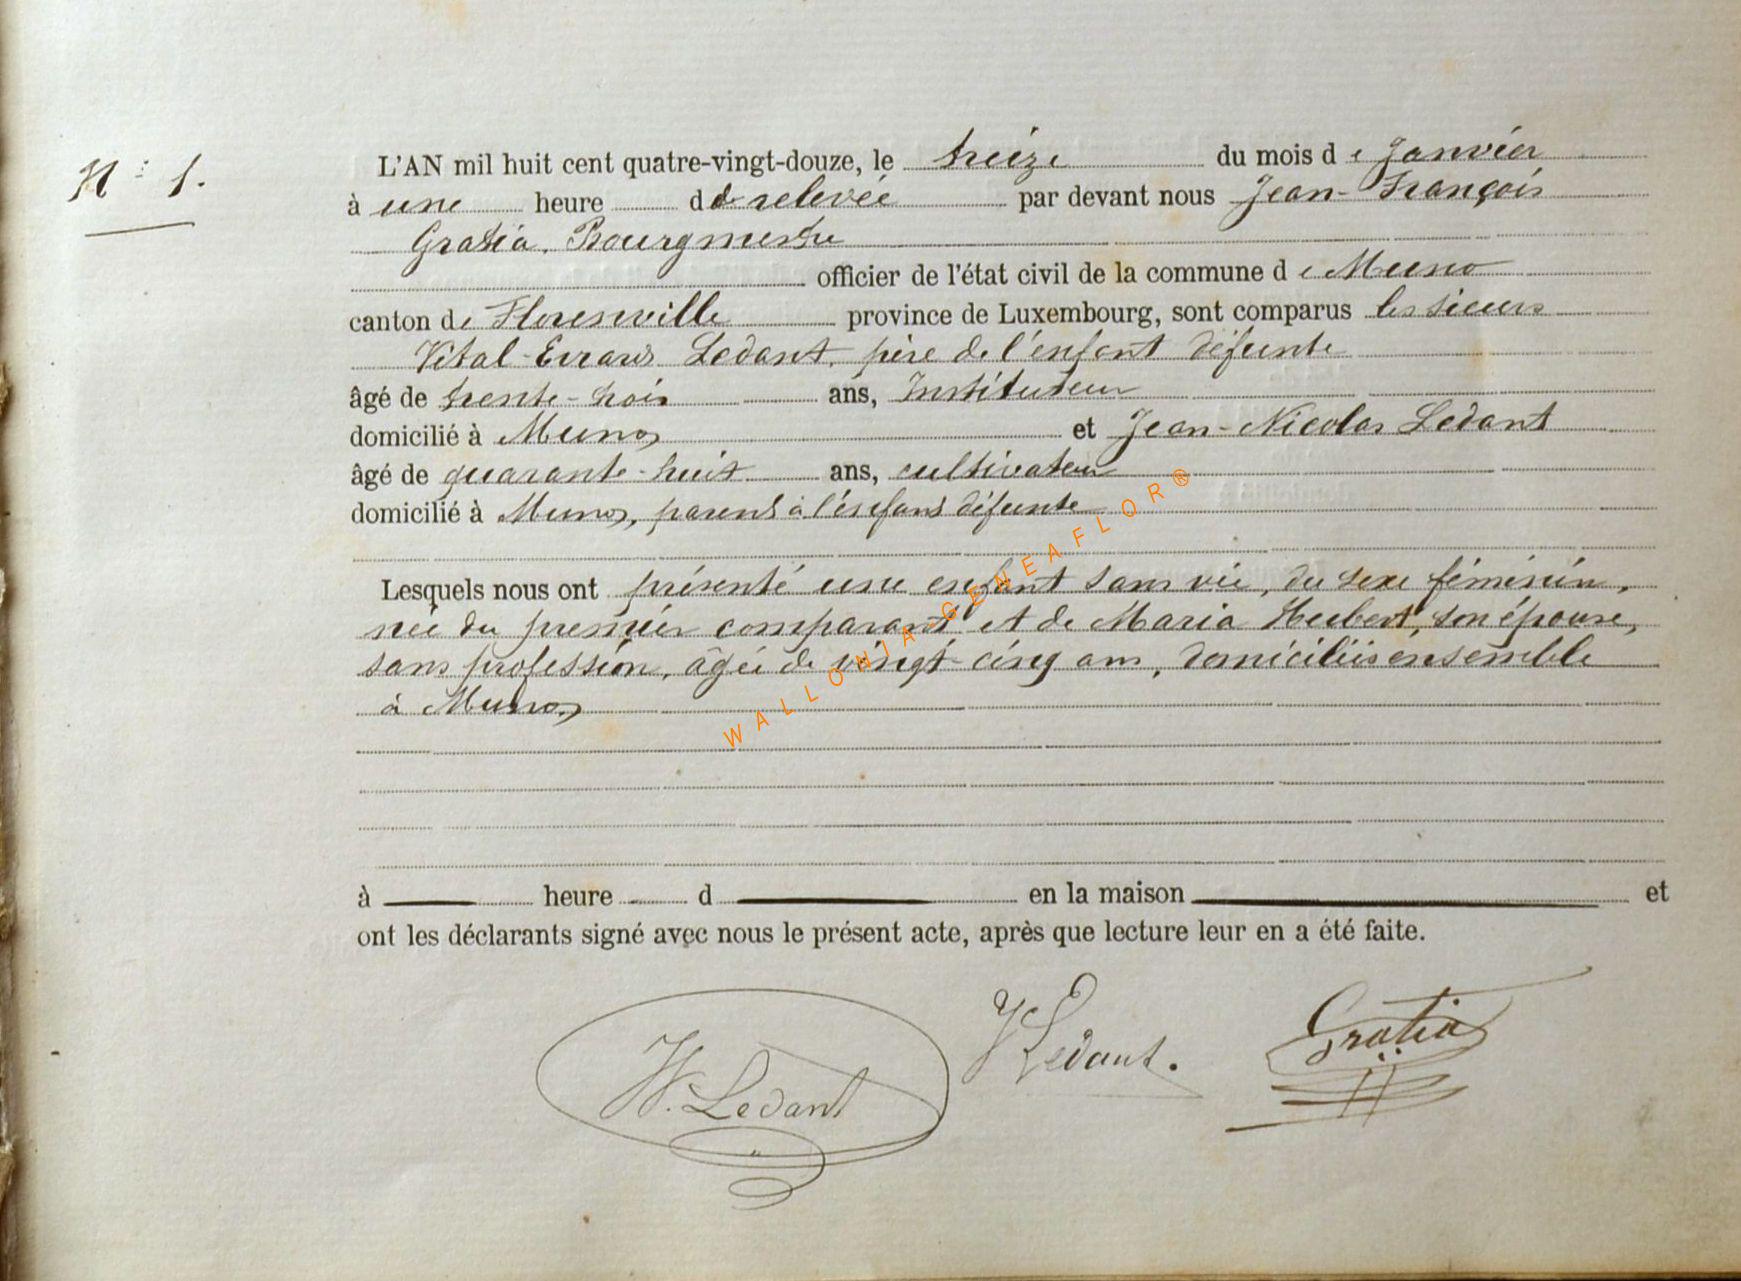 N: 1.
L'AN mil huit cent quatre-vingt-douze, le treize du mois de Janvier
à une heure d de relevée par devant nous Jean-François
Gratia, Bourgmestre
officier de l'état civil de la commune de Muno
canton de Florenville province de Luxembourg, sont comparus les sieurs
Vital-Evrard Ledant, père de l'enfant défunte
âgé de trente-trois ans, Instituteur
domicilié à Muno, et Jean-Nicolas Ledant
âgé de quarante-huit ans, cultivateur
domicilié à Muno, parent à l'enfant défunte
Lesquels nous ont présenté une enfant sans vie, du sexe féminin,
née du premier comparant et de Maria Hubert, son épouse,
sans profession, âgée de vingt-cinq ans, domiciliés ensemble
à Muno,
à heure d en la maison et
ont les déclarants signé avec nous le présent acte, après que lecture leur en a été faite.
Ledant V Ledant. Gratia
WALLONIA GENEAFLOR®